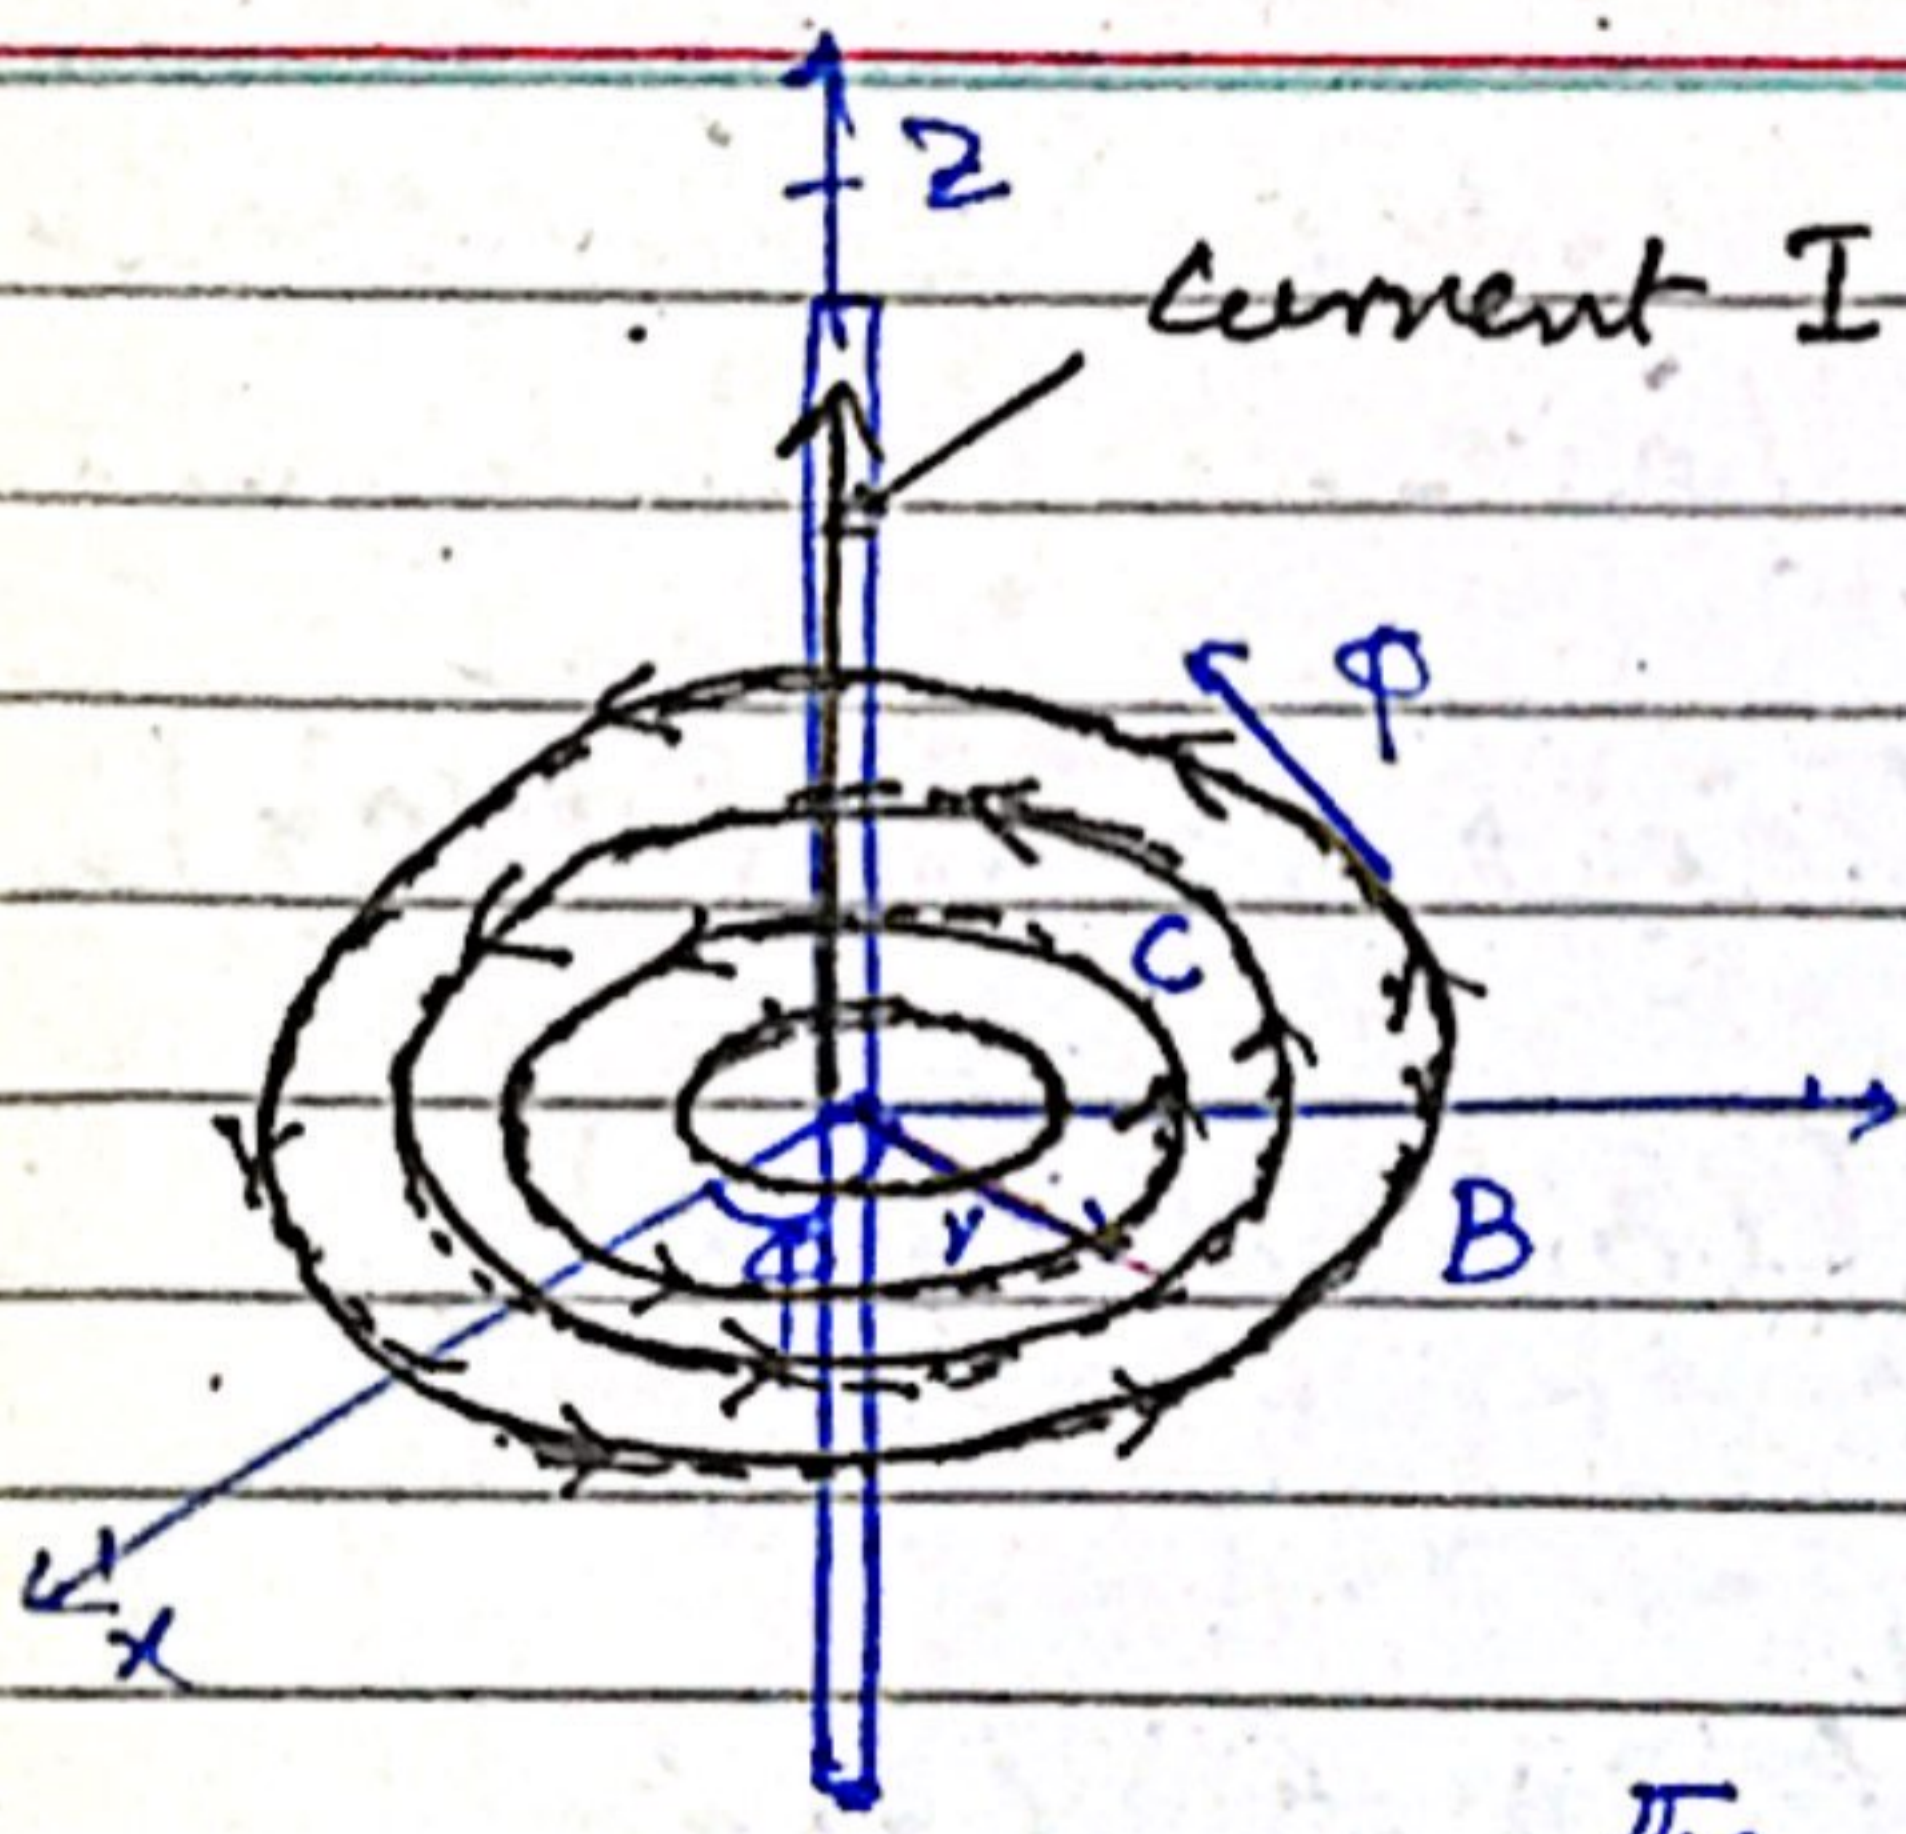 z
Current I
φ
C
B
φ
r
x